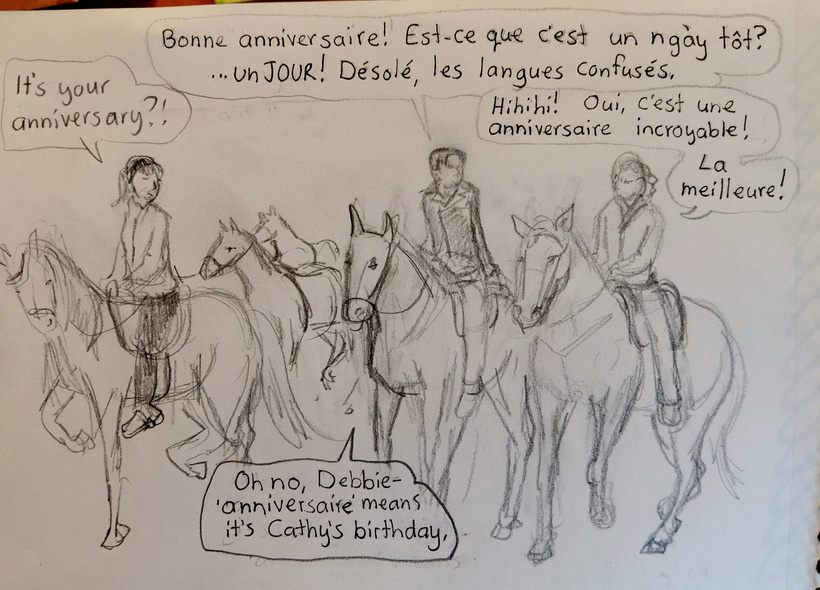 Bonne anniversaire! Est-ce que c'est un ngày tốt?
...un JOUR! Désolé, les langues confusés.
It's your
anniversary?!
Hihihi! Oui, c'est une
anniversaire incroyable!
La
meilleure!
Oh no, Debbie-
'anniversaire' means
it's Cathy's birthday.